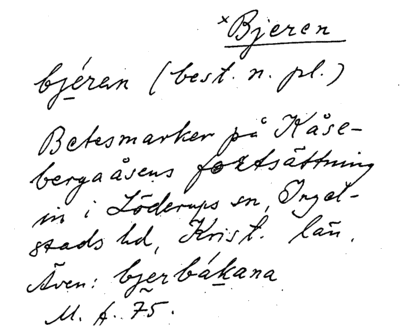 × Bjeren
bjéran (best. n. pl.)
Betesmarker på Kåse-
bergaåsens fortsättning
in i Löderups sn, Ingel-
stads hd, Krist. län.
Även: bjerbákana
M. f. 75.